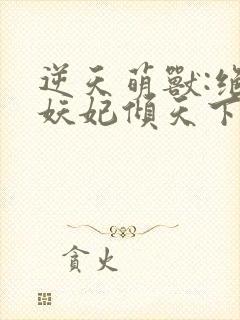 逆天萌獸:絕
妖妃傾天下
貪火